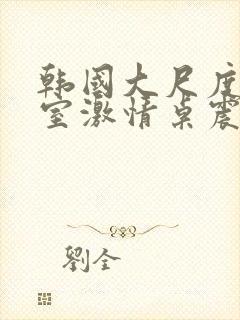 韩國大尺度
室激情桌震
劉全